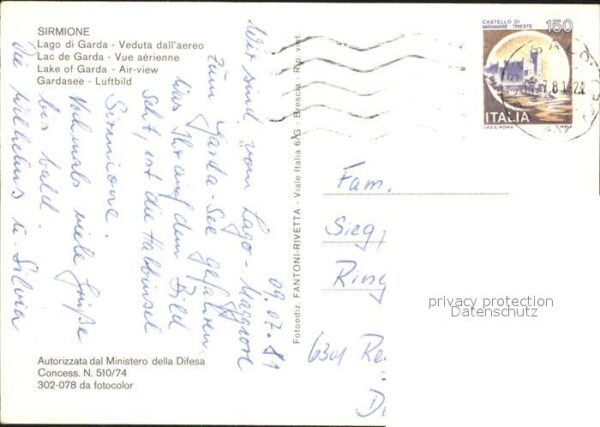 SIRMIONE
Lago di Garda - Veduta dall'aereo
Lac de Garde - Vue aérienne
Lake of Garda - Air-view
Gardasee - Luftbild
09.07.81
Wir sind vom Lago-Maggiore
zum Garda-See gefahren.
Was Ihr auf dem Bild
seht, ist die Halbinsel
Sirmione.
Nochmals viele Grüße
bis bald
die Wilhelms u. Silvia
Autorizzata dal Ministero della Difesa
Concess. N. 510/74
302-078 da fotocolor
Fotoediz. FANTONI-RIVETTA - Viale Italia 6/G - Brescia - Rip. viet.
CASTELLO DI
MIRAMARE - TRIESTE
150
ITALIA
I.P.Z.S.-ROMA
Fam.
Sieg
Ring
6301
privacy protection
Datenschutz